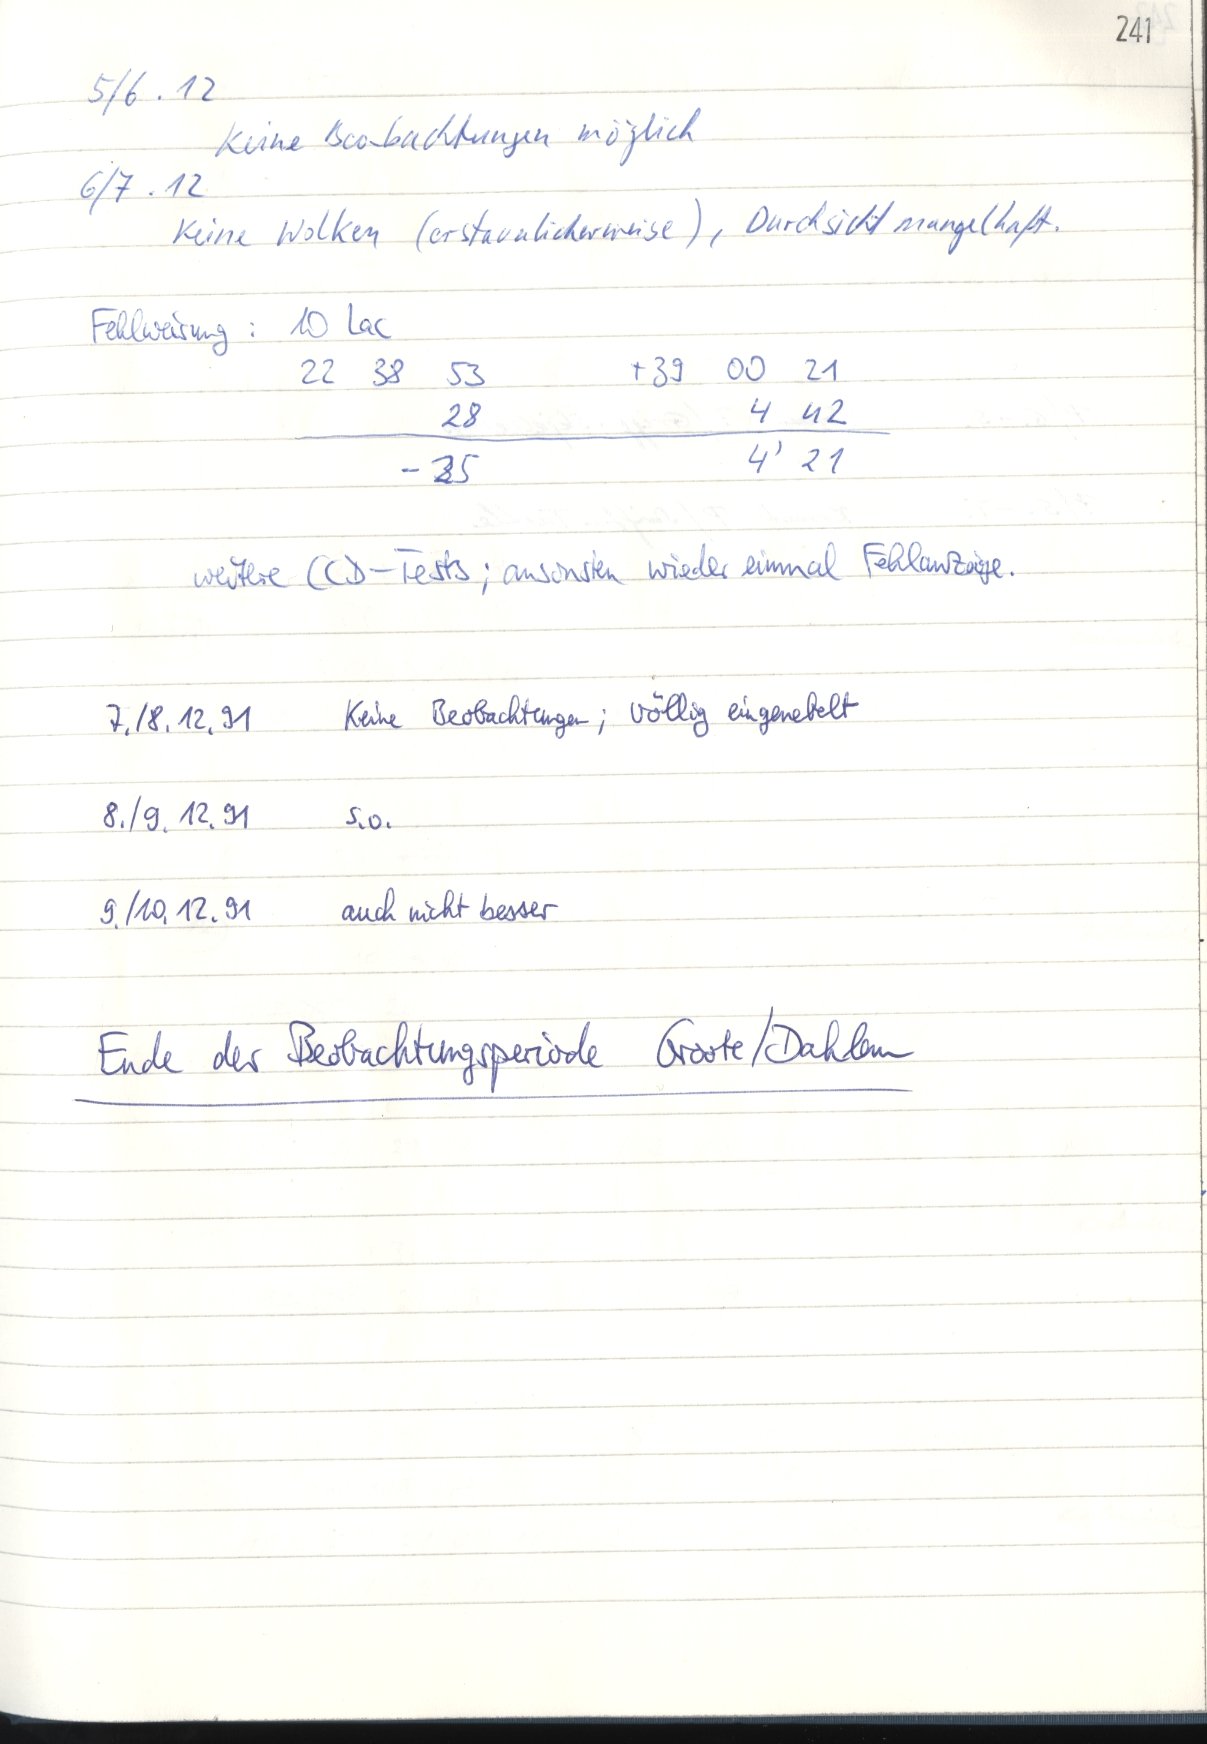 241
5/6.12
Keine Beobachtungen möglich
6/7.12
Keine Wolken (erstaunlicherweise), Durchsicht mangelhaft.
Fehlweisung: 10 Lac
22 38 53 +39 00 21
28 4 42
-25 4' 21
weitere CCD-Tests; ansonsten wieder einmal Fehlanzeige.
7./8.12.91 Keine Beobachtungen; völlig eingenebelt
8./9.12.91 s.o.
9./10.12.91 auch nicht besser
Ende der Beobachtungsperiode Groote/Dahlem